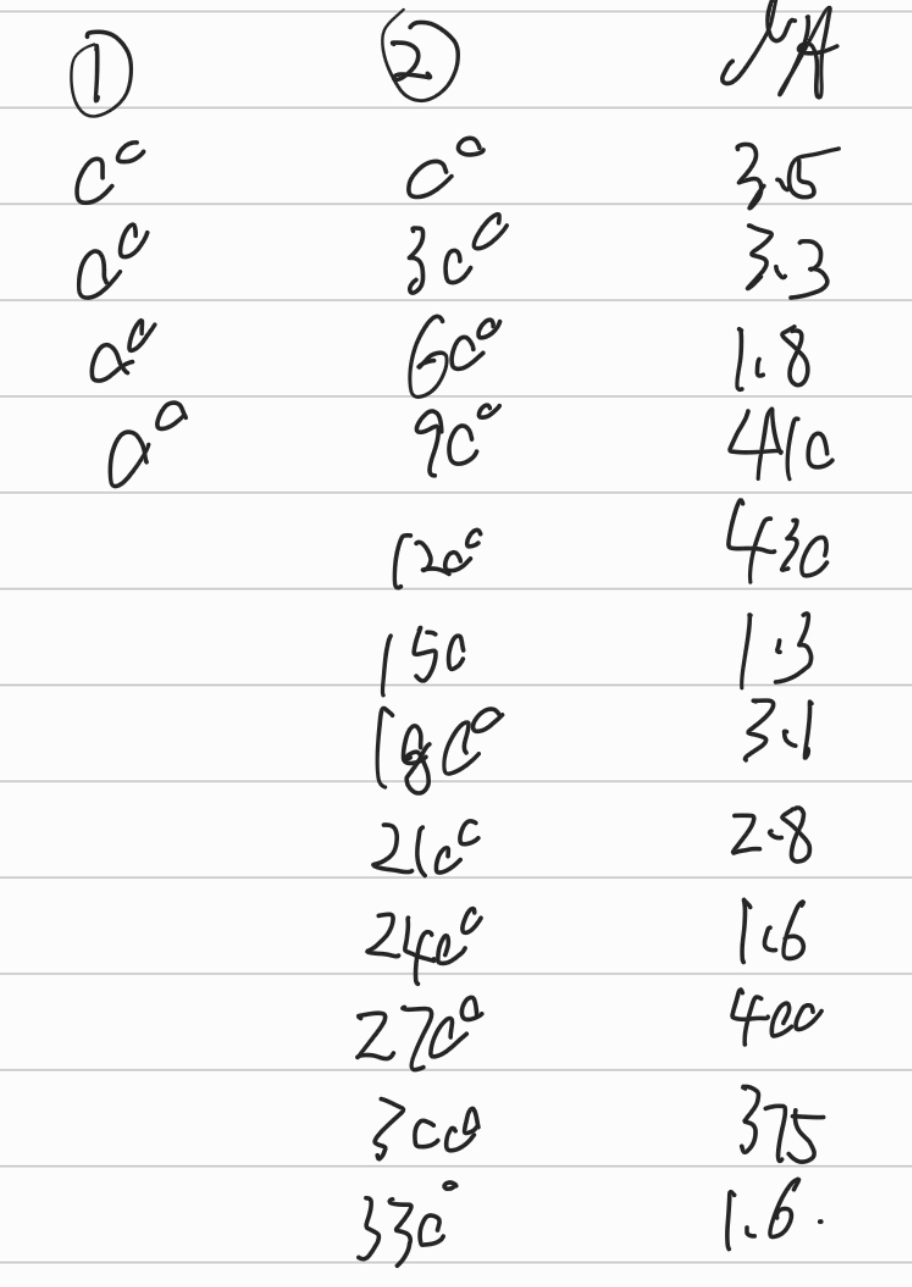 ① ② μA
0° 0° 3.5
0° 30° 3.3
0° 60° 1.8
0° 90° 410
120° 430
150 1.3
180° 3.1
210° 2.8
240° 1.6
270° 400
300° 375
330° 1.6.